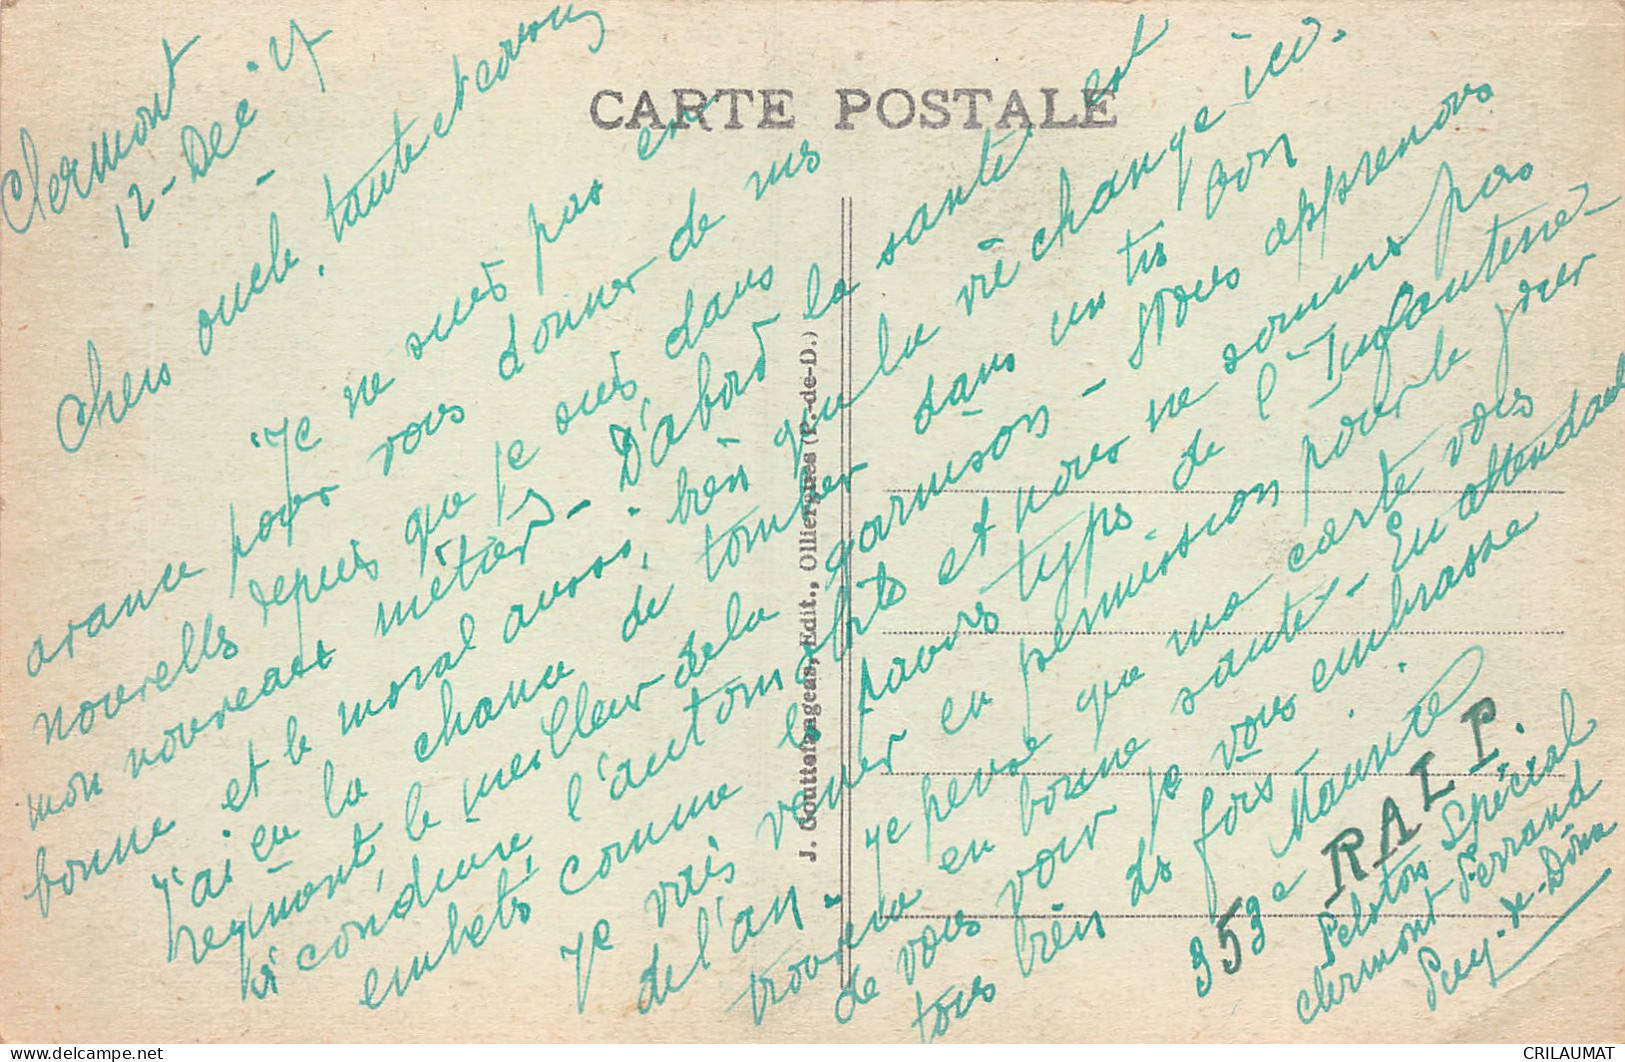 CARTE POSTALE
Clermont
12 - Dec
Chers oncle, tante et cousin
Je ne suis pas en
avance pour vous donner de mes
nouvelles depuis que je suis dans
mon nouveau métier - D'abord la santé est
bonne et le moral aussi, bien que la vie change ici.
J'ai eu la chance de tomber dans un très bon
régiment, le meilleur de la garnison - Nous apprenons
à conduire l'automobile et nous ne sommes pas
embêtés comme les pauvres types de l'Infanterie -
Je vais venir en permission pour le 1er
de l'an - Je pense que ma carte vous
trouvera en bonne santé - En attendant
de vous voir je vous embrasse
tous bien des fois.
Maurice
353e R A L P.
Peloton Spécial
Clermont Ferrand
Puy-de-Dôme
J. Gouttefangeas, Edit., Olliergues (P.-de-D.)
CRILAUMAT